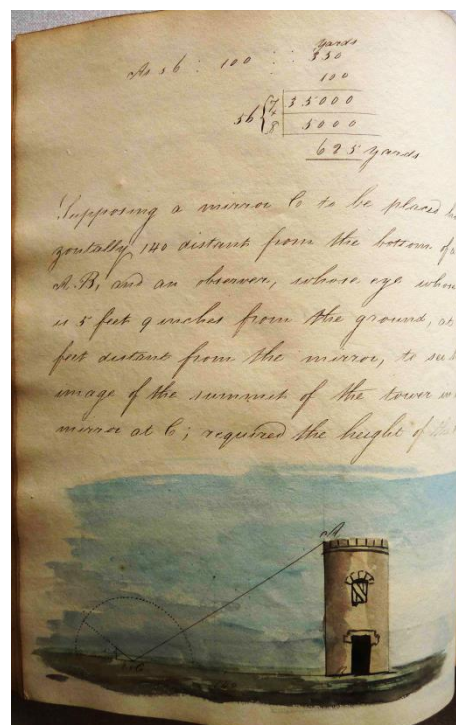 yards
As 56 : 100 : : 350
100
56 { 7 | 35000
8 | 5000
625 yards
Supposing a mirror C to be placed ho
zontally 140 distant from the bottom of a
A.B, and an observer, whose eye when
is 5 feet 9 inches from the ground, at
feet distant from the mirror, to see
image of the summit of the tower in
mirror at C; required the height of the
A
C